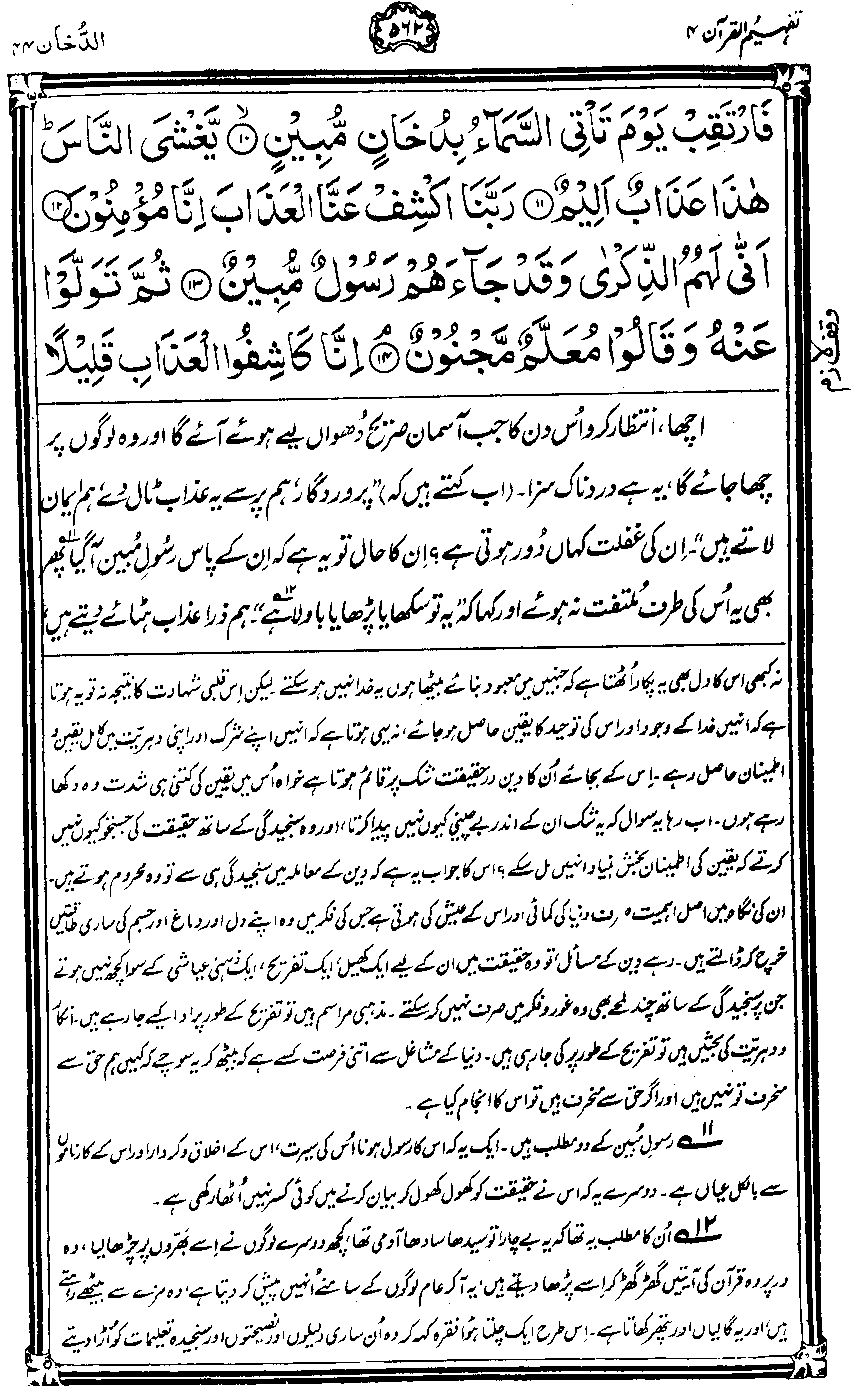 تفہیم القرآن ۴
۵۶۲
الدُّخان ۴۴
فَارْتَقِبْ يَوْمَ تَاْتِي السَّمَآءُ بِدُخَانٍ مُّبِيْنٍ ۙ۝۱۰ يَّغْشَى النَّاسَ ؕ
هٰذَا عَذَابٌ اَلِيْمٌ ۝۱۱ رَبَّنَا اكْشِفْ عَنَّا الْعَذَابَ اِنَّا مُؤْمِنُوْنَ ۝۱۲
اَنّٰى لَهُمُ الذِّكْرٰى وَقَدْ جَآءَهُمْ رَسُوْلٌ مُّبِيْنٌ ۝۱۳ ثُمَّ تَوَلَّوْا
عَنْهُ وَقَالُوْا مُعَلَّمٌ مَّجْنُوْنٌ ۘ۝۱۴ اِنَّا كَاشِفُوا الْعَذَابِ قَلِيْلًا
وقف لازم
اچھا، انتظار کرو اُس دن کا جب آسمان صریح دُھواں لیے ہوئے آئے گا اور وہ لوگوں پر
چھا جائے گا، یہ ہے دردناک سزا۔ (اب کہتے ہیں کہ) "پروردگار، ہم پر سے یہ عذاب ٹال دے، ہم ایمان
لاتے ہیں"۔ اِن کی غفلت کہاں دُور ہوتی ہے؟ اِن کا حال تو یہ ہے کہ اِن کے پاس رسُولِ مُبین آگیا ۱۱ پھر
بھی یہ اُس کی طرف مُلتفت نہ ہوئے اور کہا کہ "یہ تو سکھایا پڑھایا باولا ہے" ۱۲۔ ہم ذرا عذاب ہٹائے دیتے ہیں،
نہ کبھی اس کا دل بھی یہ پکار اُٹھتا ہے کہ جنہیں میں معبود بنائے بیٹھا ہوں یہ خدا نہیں ہو سکتے۔ لیکن اِس قلبی شہادت کا نتیجہ نہ تو یہ ہوتا
ہے کہ انہیں خدا کے وجود اور اس کی توحید کا یقین حاصل ہو جائے، نہ یہی ہوتا ہے کہ انہیں اپنے شرک اور اپنی دہریّت میں کامل یقین و
اطمینان حاصل رہے۔ اِس کے بجائے اُن کا دین درحقیقت شک پر قائم ہوتا ہے خواہ اُس میں یقین کی کتنی ہی شدت وہ دکھا
رہے ہوں۔ اب رہا یہ سوال کہ یہ شک ان کے اندر بے چینی کیوں نہیں پیدا کرتا، اور وہ سنجیدگی کے ساتھ حقیقت کی جستجو کیوں نہیں
کرتے کہ یقین کی اطمینان بخش بنیاد انہیں مل سکے؟ اس کا جواب یہ ہے کہ دین کے معاملہ میں سنجیدگی ہی سے تو وہ محروم ہوتے ہیں۔
ان کی نگاہ میں اصل اہمیت صرف دنیا کی کمائی اور اس کے عیش کی ہوتی ہے جس کی فکر میں وہ اپنے دل اور دماغ اور جسم کی ساری طاقتیں
خرچ کر ڈالتے ہیں۔ رہے دین کے مسائل، تو وہ حقیقت میں ان کے لیے ایک کھیل، ایک تفریح، ایک ذہنی عیاشی کے سوا کچھ نہیں ہوتے
جن پر سنجیدگی کے ساتھ چند لمحے بھی وہ غور و فکر میں صرف نہیں کر سکتے۔ مذہبی مراسم ہیں تو تفریح کے طور پر ادا کیے جا رہے ہیں۔ انکار
و دہریّت کی بحثیں ہیں تو تفریح کے طور پر کی جا رہی ہیں۔ دنیا کے مشاغل سے اتنی فرصت کسے ہے کہ بیٹھ کر یہ سوچے کہ کہیں ہم حق سے
منحرف تو نہیں ہیں اور اگر حق سے منحرف ہیں تو اس کا انجام کیا ہے۔
۱۱ رسُولِ مُبین کے دو مطلب ہیں۔ ایک یہ کہ اس کا رسول ہونا اُس کی سیرت، اس کے اخلاق و کردار اور اس کے کارناموں
سے بالکل عیاں ہے۔ دوسرے یہ کہ اس نے حقیقت کو کھول کھول کر بیان کرنے میں کوئی کسر نہیں اُٹھا رکھی ہے۔
۱۲ اُن کا مطلب یہ تھا کہ یہ بے چارا تو سیدھا سادھا آدمی تھا، کچھ دوسرے لوگوں نے اِسے بھَرّوں پر چڑھا لیا، وہ
درپردہ قرآن کی آیتیں گھڑ گھڑ کر اِسے پڑھا دیتے ہیں، یہ آکر عام لوگوں کے سامنے اُنہیں پیش کر دیتا ہے، وہ مزے سے بیٹھے رہتے
ہیں، اور یہ گالیاں اور پتھر کھاتا ہے۔ اِس طرح ایک چلتا ہوا فقرہ کہہ کر وہ اُن ساری دلیلوں اور نصیحتوں اور سنجیدہ تعلیمات کو اُڑا دیتے